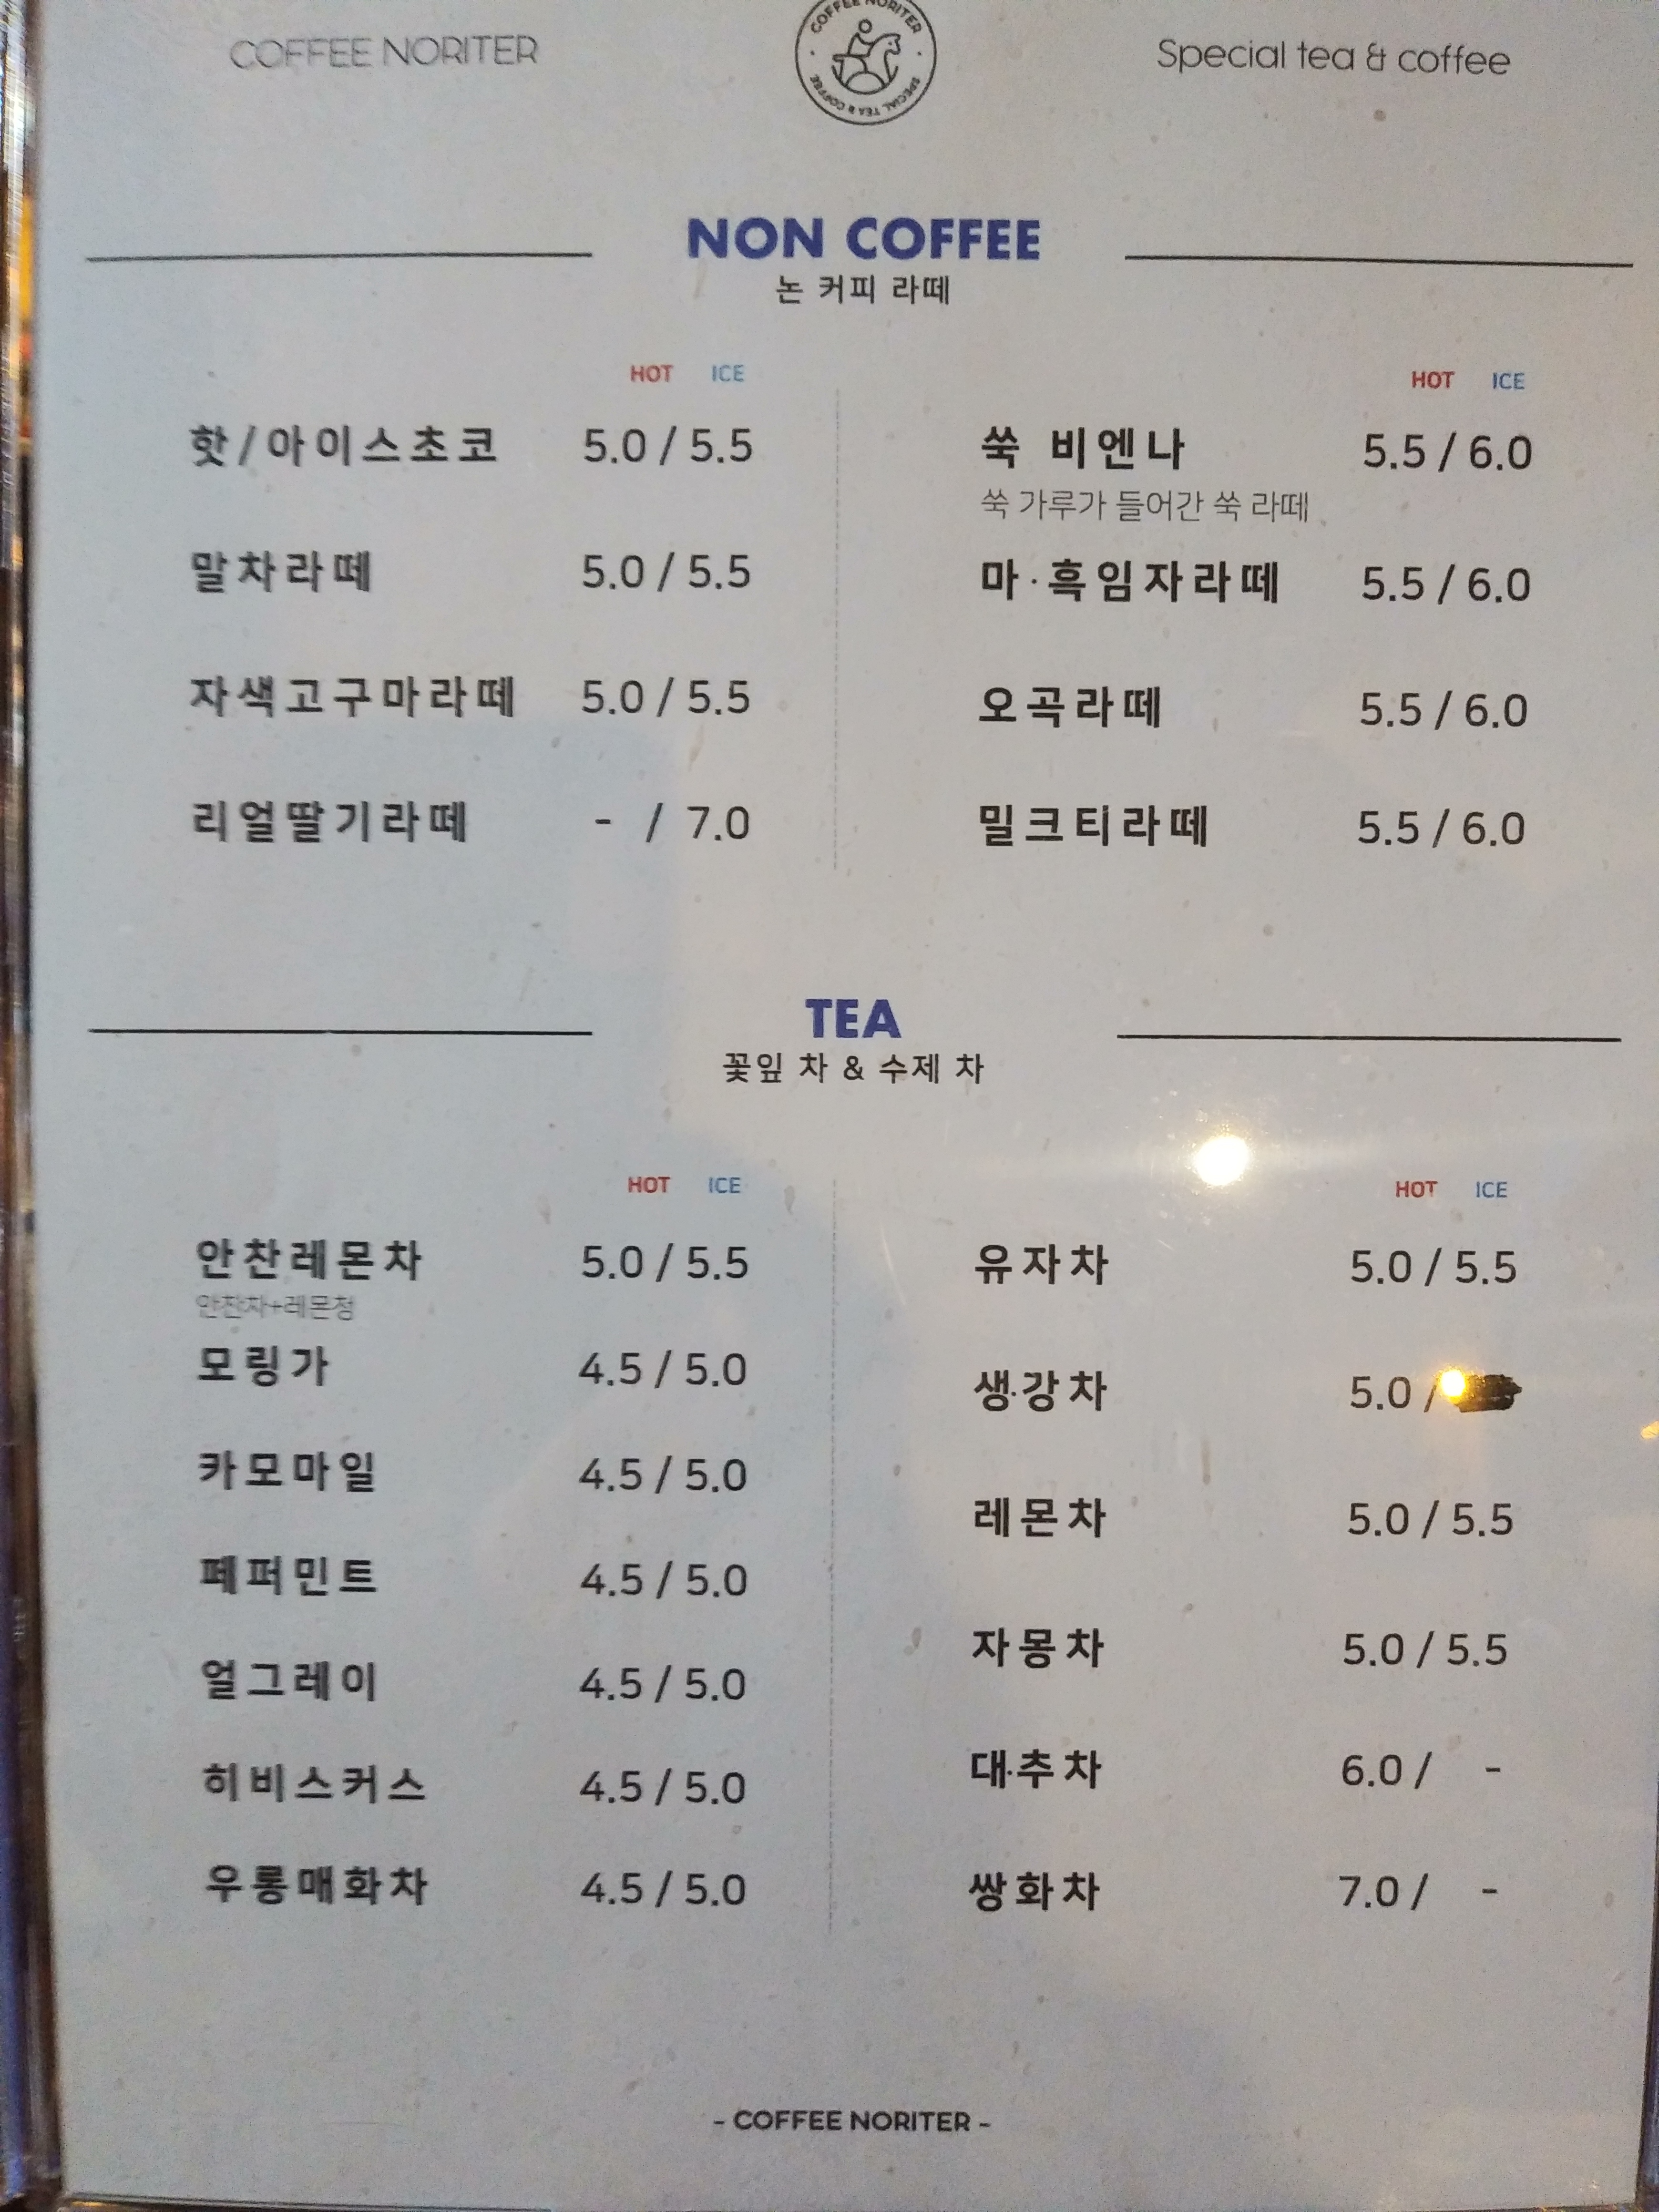 COFFEE NORITER
COFFEE NORITER · SPECIAL TEA & COFFEE ·
Special tea & coffee
NON COFFEE
논 커피 라떼
HOT ICE
핫/아이스초코 5.0 / 5.5
말차라떼 5.0 / 5.5
자색고구마라떼 5.0 / 5.5
리얼딸기라떼 - / 7.0
HOT ICE
쑥 비엔나 5.5 / 6.0
쑥 가루가 들어간 쑥 라떼
마·흑임자라떼 5.5 / 6.0
오곡라떼 5.5 / 6.0
밀크티라떼 5.5 / 6.0
TEA
꽃잎 차 & 수제 차
HOT ICE
안찬레몬차 5.0 / 5.5
안찬차+레몬청
모링가 4.5 / 5.0
카모마일 4.5 / 5.0
페퍼민트 4.5 / 5.0
얼그레이 4.5 / 5.0
히비스커스 4.5 / 5.0
우롱매화차 4.5 / 5.0
HOT ICE
유자차 5.0 / 5.5
생강차 5.0 /
레몬차 5.0 / 5.5
자몽차 5.0 / 5.5
대추차 6.0 / -
쌍화차 7.0 / -
- COFFEE NORITER -